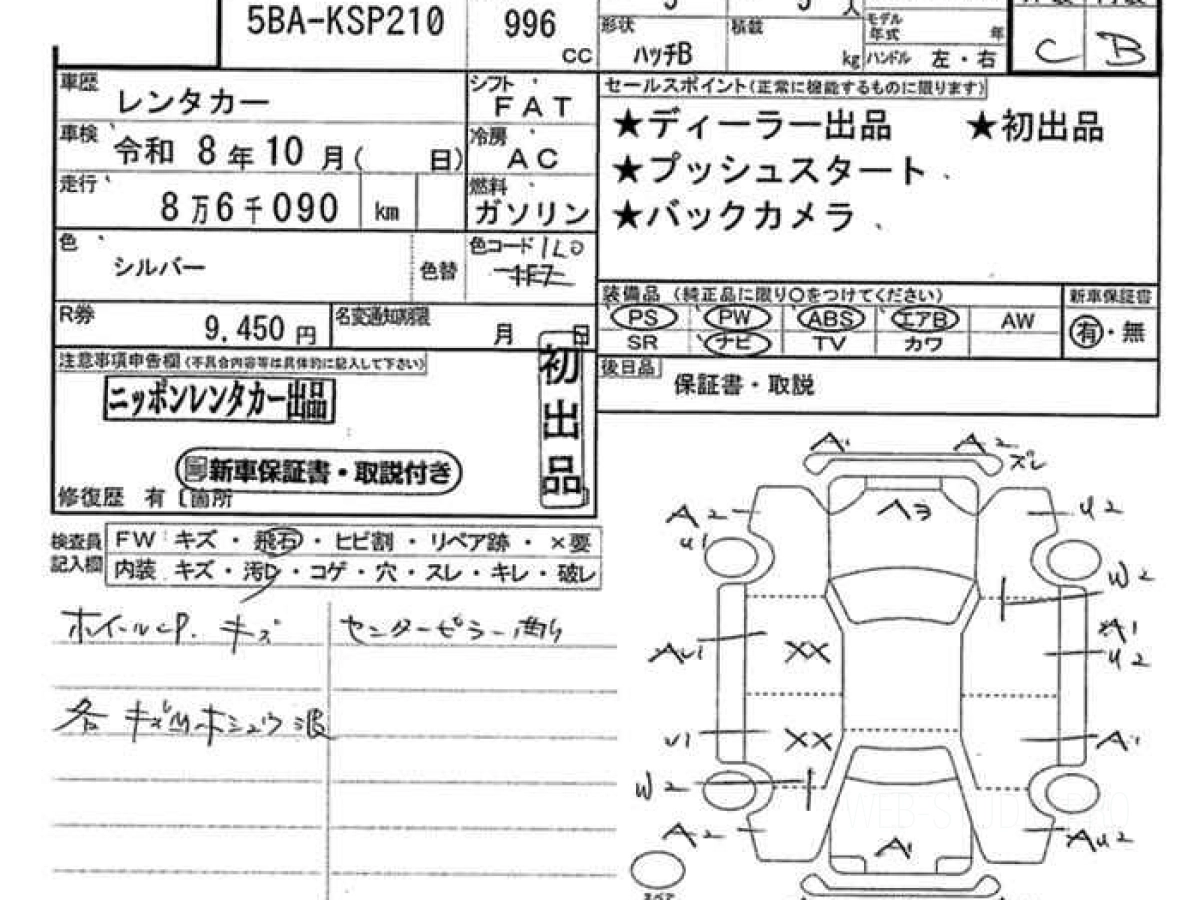 5BA-KSP210
996
CC
形状
ハッチB
積載
kg
人
モデル年式
年
ハンドル 左・右
C B
車歴
レンタカー
シフト
FAT
車検
令和 8年10月( 日)
冷房
AC
走行
8万6千090 km
燃料
ガソリン
色
シルバー
色替
色コード 1L0
R券
9.450円
名変通知期限
月 日
セールスポイント(正常に機能するものに限ります)
★ディーラー出品 ★初出品
★プッシュスタート
★バックカメラ
装備品 (純正品に限り○をつけてください)
新車保証書
PS PW ABS エアB AW
SR ナビ TV カワ
有・無
後日品
保証書・取説
注意事項申告欄(不具合内容等は具体的に記入して下さい)
ニッポンレンタカー出品
初出品
新車保証書・取説付き
修復歴 有〔箇所 〕
検査員記入欄
FW キズ・飛石・ヒビ割・リペア跡・×要
内装 キズ・汚・コゲ・穴・スレ・キレ・破レ
ホイールcP. キズ
センターピラー曲り
A1 A2
ズレ
A2 U2
U1
Aヨ
W2
A1
AU1 XX U2
U1 XX A1
W2
A2 AU2
A1